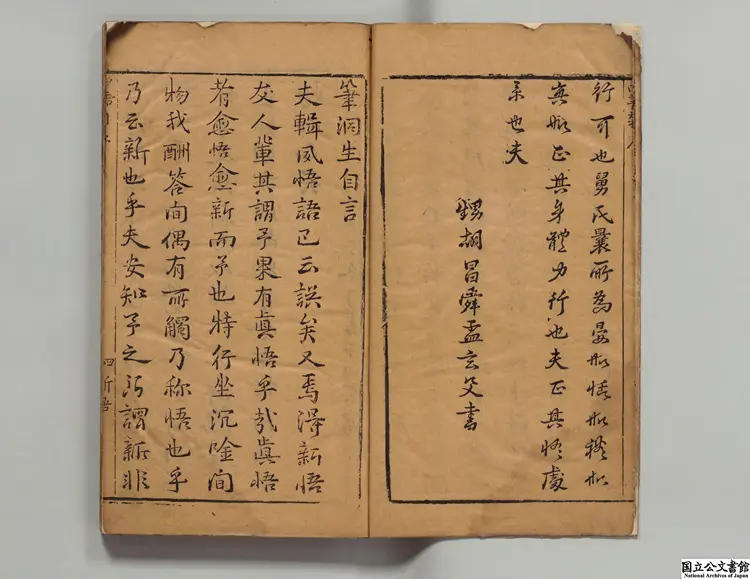 行可也舅氏曩所為晏如恬如穆如
真如正其身體力行也夫正其悟處
示也夫
甥胡昌舜孟玄父書
筆洞生自言
夫輯夙悟語已云誤矣又焉得新悟
友人輩其謂予果有真悟乎哉真悟
者愈悟愈新而予也特行坐沉唫間
物我酬答間偶有所觸乃称悟也乎
乃云新也乎夫安知予之所謂新非
四
国立公文書館
National Archives of Japan